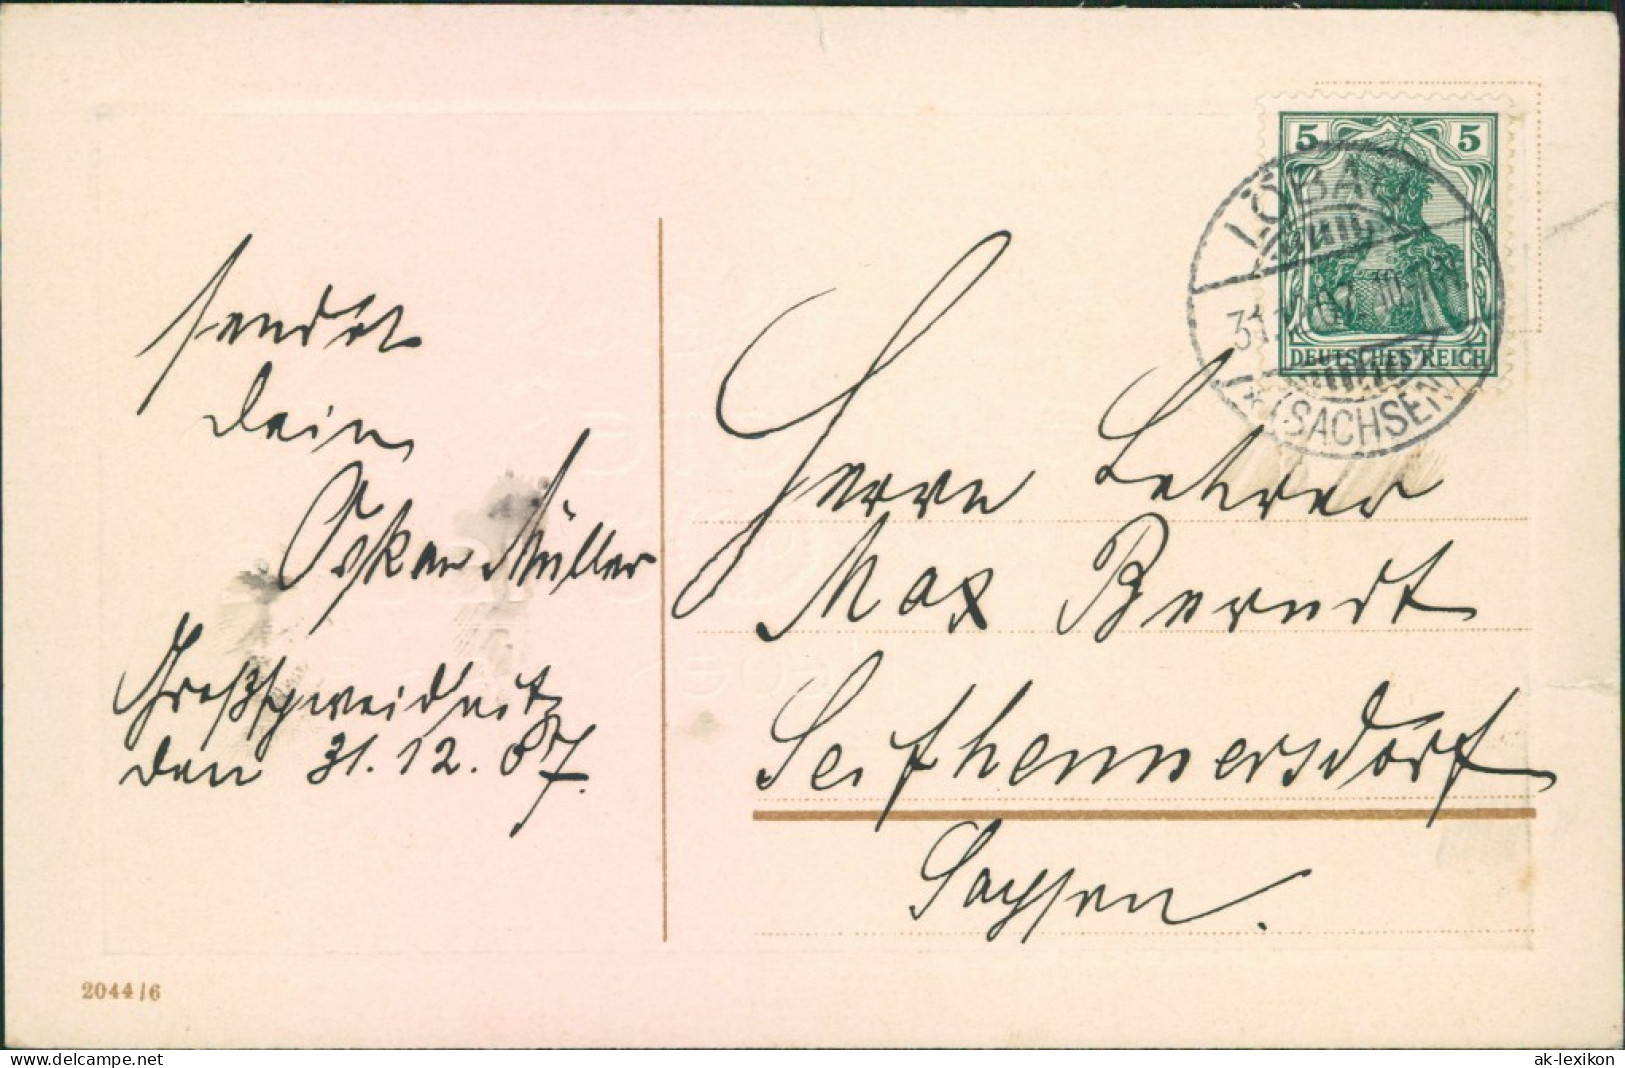 sendet
Dein
Oskar Müller
Großschweidnitz
den 31. 12. 07.
5 5
DEUTSCHES REICH
LÖBAU
31.12.07. 10-11V.
* (SACHSEN)
Herrn Lehrer
Max Berndt
Seifhennersdorf
Sachsen.
2044/6
delcampe.net
ak-lexikon